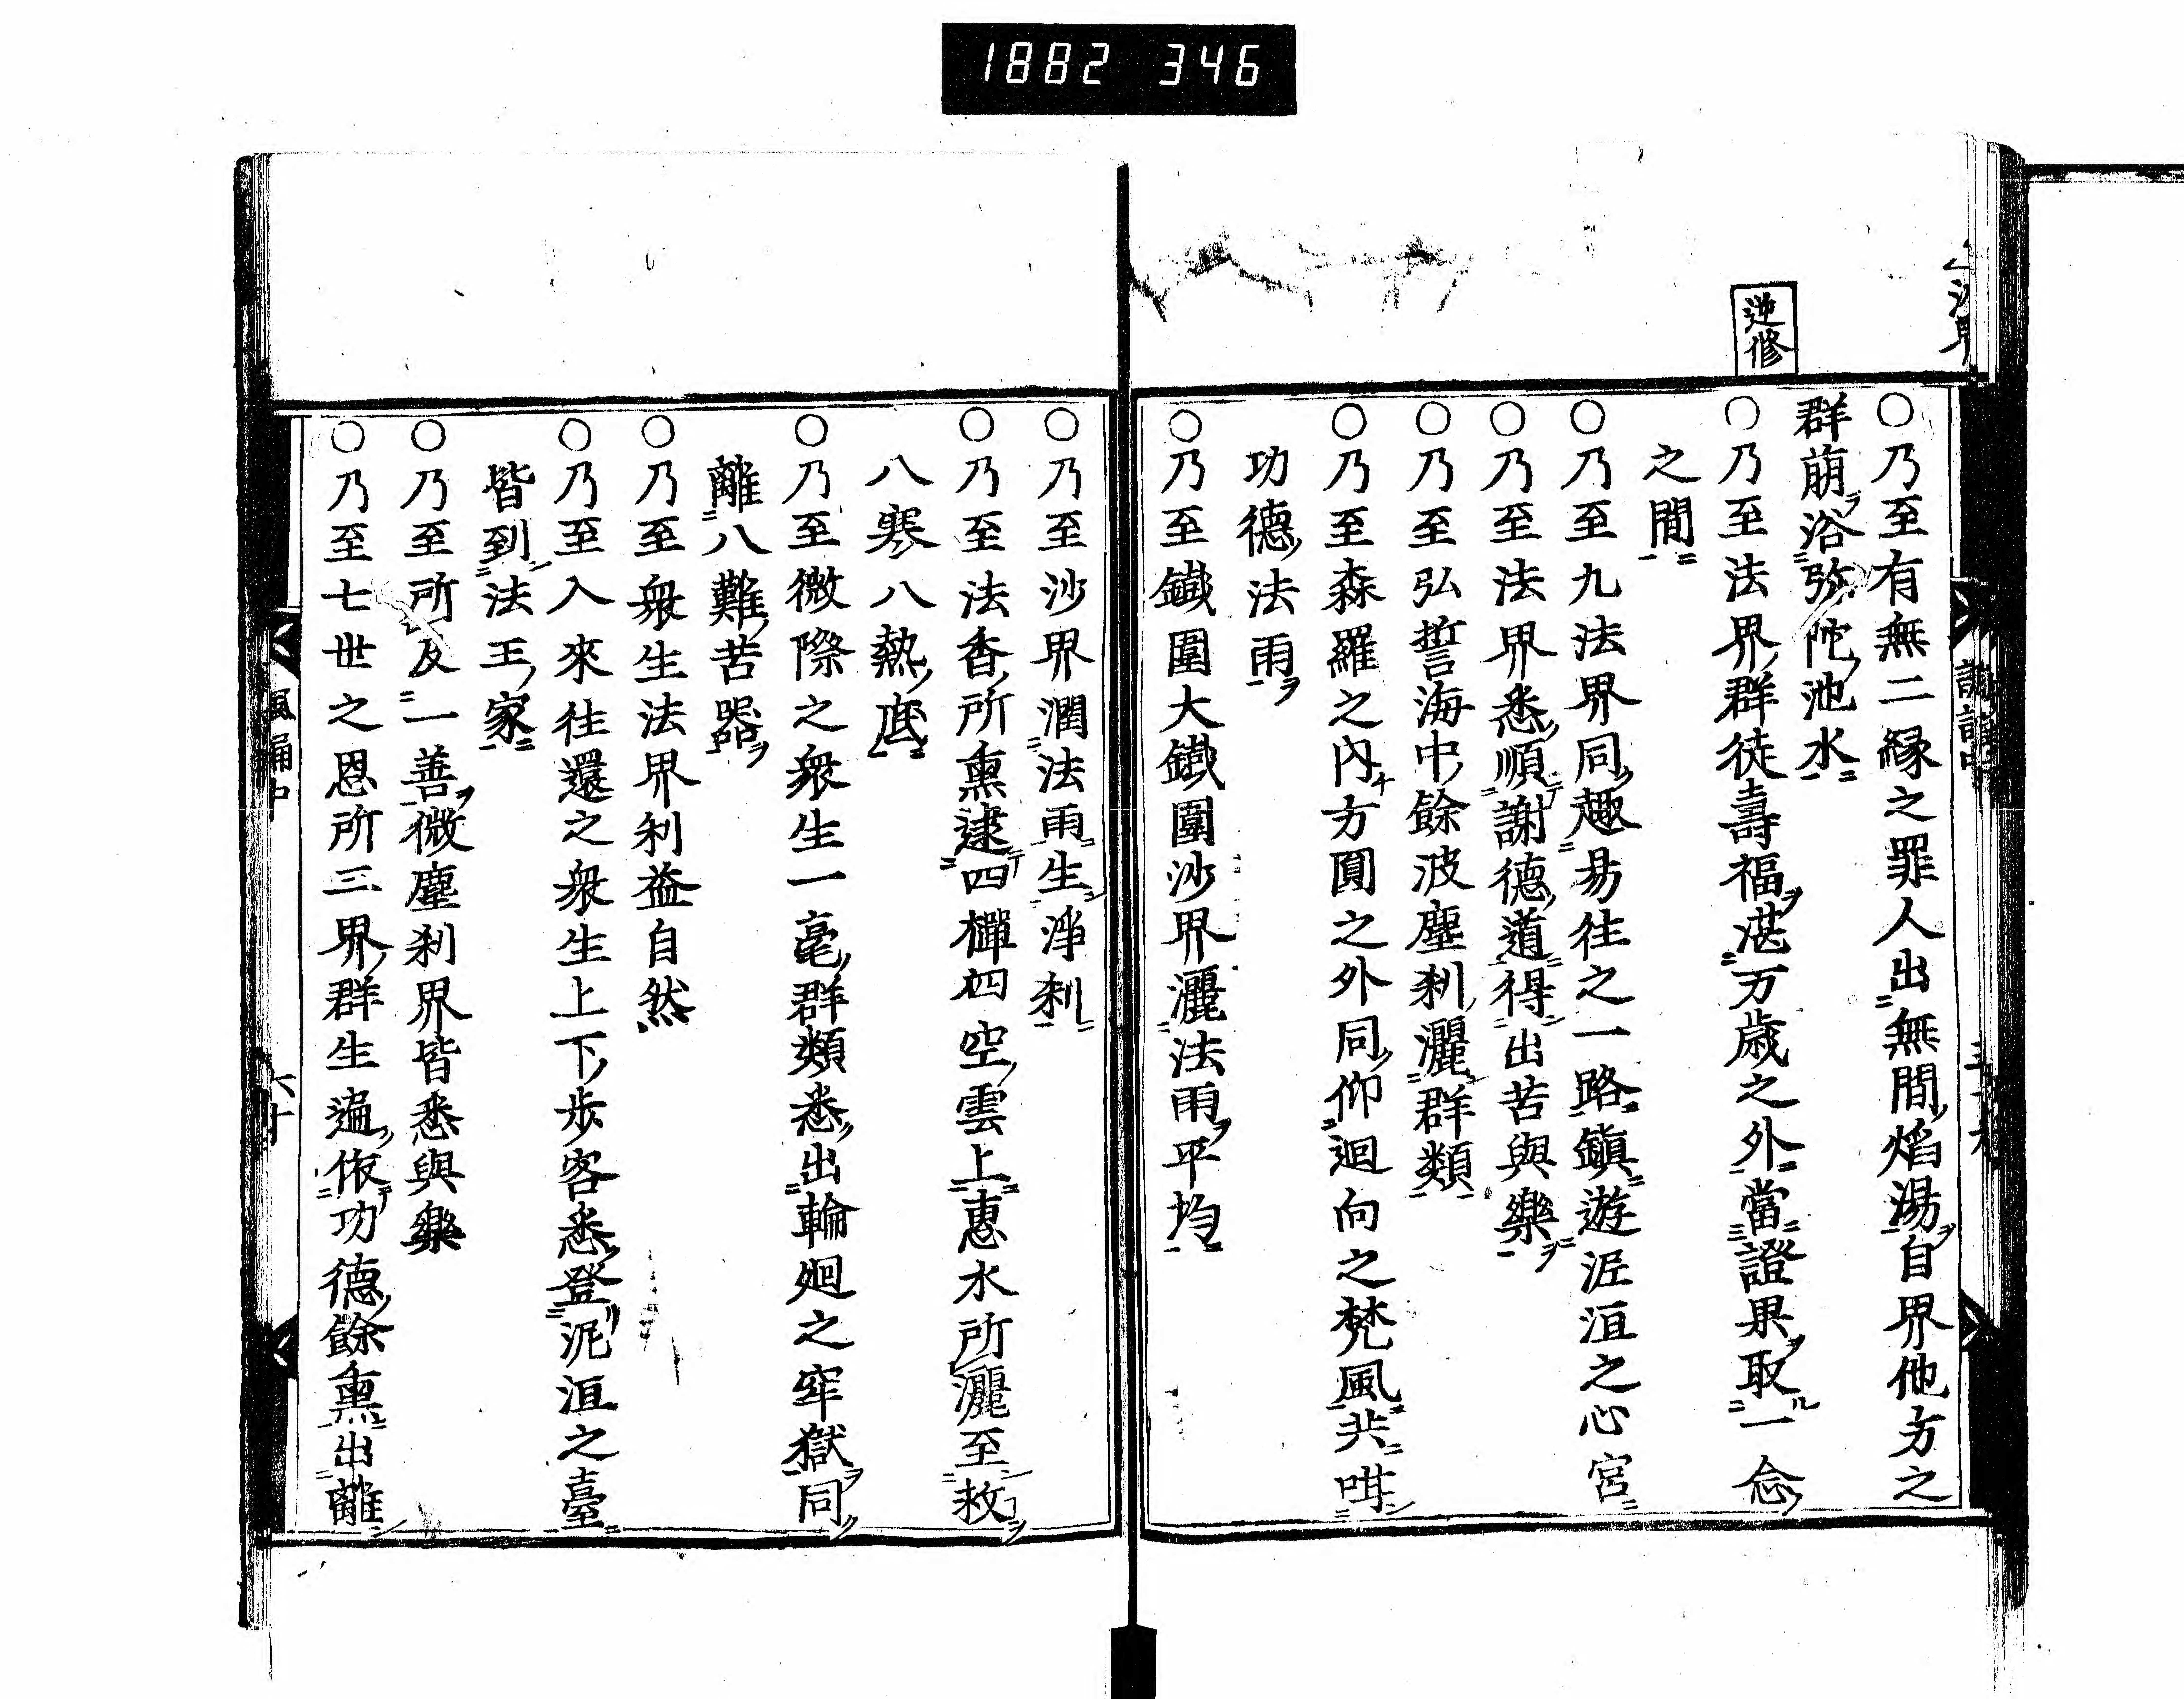 1882 346
逆修
○乃至有無二縁之罪人出無間焔湯自界他方之
群萠浴弥陀池水
○乃至法界群徒壽福湛万歳之外當證果取一念
之間
○乃至九法界同趣易往之一路鎭遊泥洹之心宮
○乃至法界悉順謝德道得出苦與樂
○乃至弘誓海中餘波塵刹灑群類
○乃至森羅之內方圓之外同仰迴向之梵風共
功德法雨
○乃至鐵圍大鐵圍沙界灑法雨平均
○乃至沙界潤法雨生淨刹
○乃至法香所熏逮四禪四空雲上惠水所灑至救
八寒八熱底
○乃至微際之衆生一毫群類悉出輪廻之牢獄同
離八難苦器
○乃至衆生法界利益自然
○乃至入來往還之衆生上下歩客悉登泥洹之臺
皆到法王家
○乃至所及一善微塵刹界皆悉與樂
○乃至七世之恩所三界群生遍依功德餘熏出離
風誦中
六十